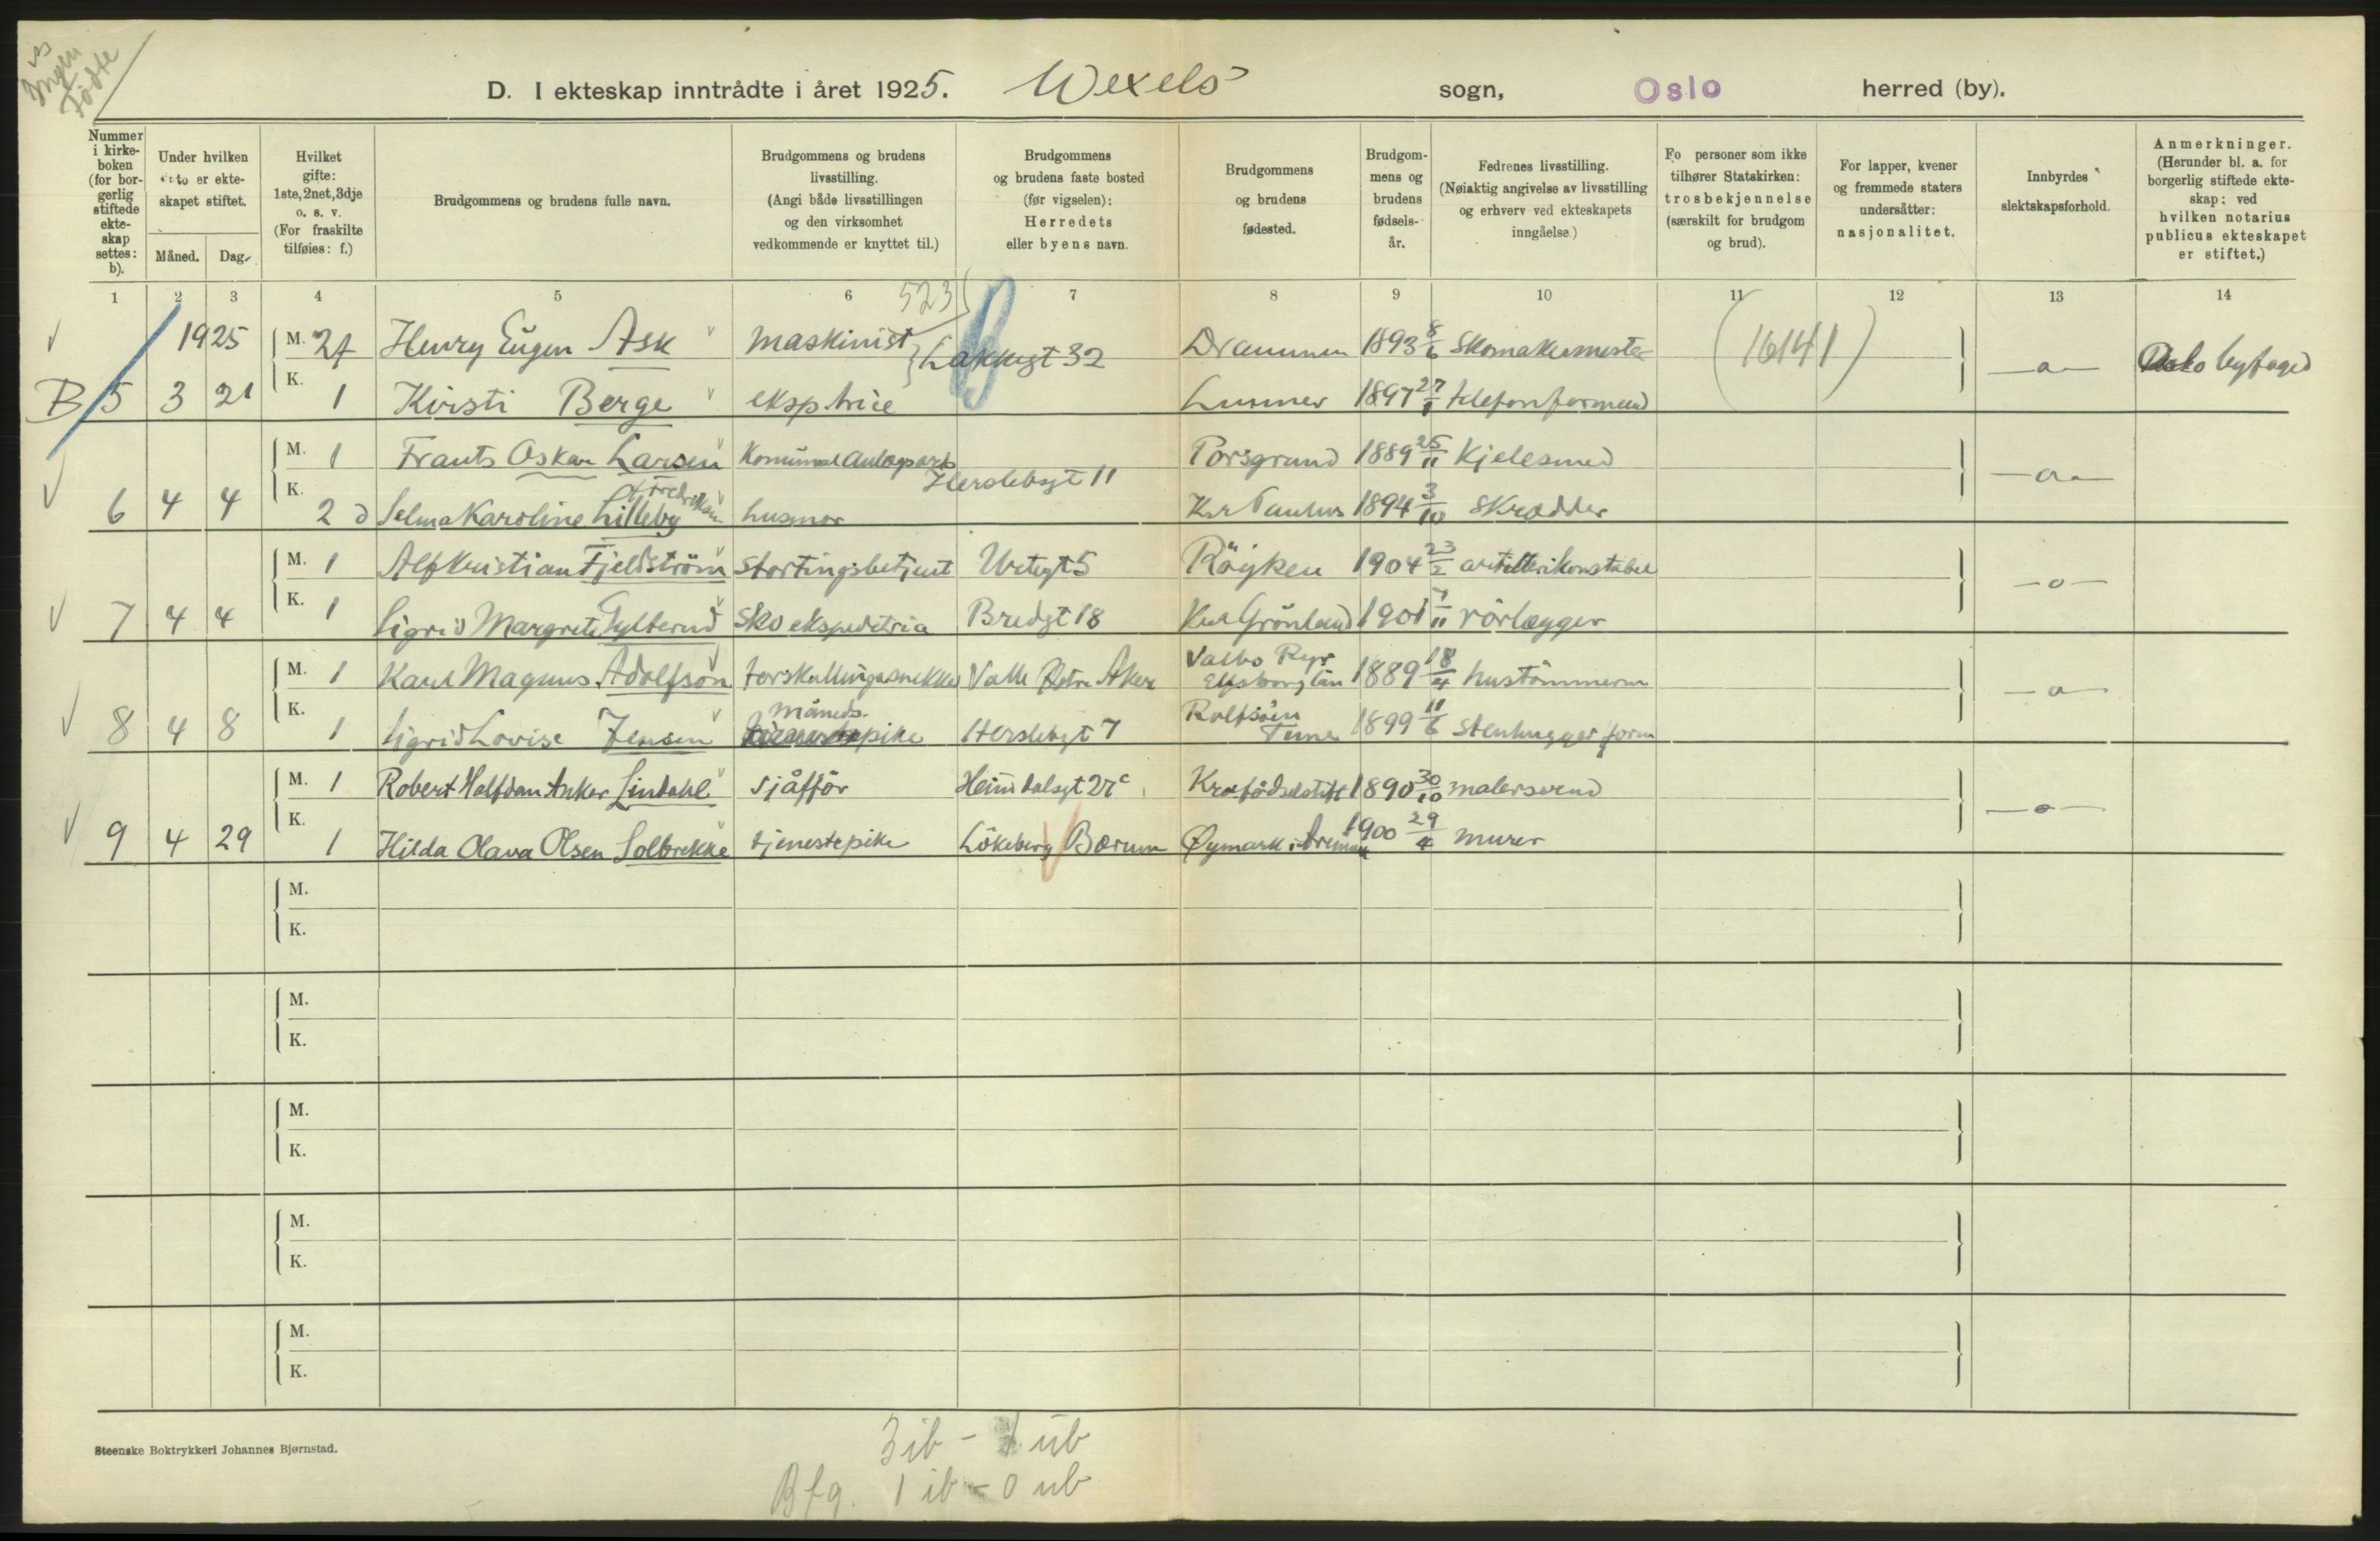 is Ingen Födte
D. I ekteskap inntrådte i året 1925. Wexels sogn, Oslo herred (by).
Nummer i kirkeboken (for borgerlig stiftede ekteskap settes: b).
Under hvilken dato er ekteskapet stiftet.
Måned. Dag.
Hvilket gifte: 1ste, 2net, 3dje o. s. v. (For fraskilte tilføies: f.)
Brudgommens og brudens fulle navn.
Brudgommens og brudens livsstilling. (Angi både livsstillingen og den virksomhet vedkommende er knyttet til.)
Brudgommens og brudens faste bosted (før vigselen): Herredets eller byens navn.
Brudgommens og brudens fødested.
Brudgommens og brudens fødselsår.
Fedrenes livsstilling. (Nøiaktig angivelse av livsstilling og erhverv ved ekteskapets inngåelse.)
Fo personer som ikke tilhører Statskirken: trosbekjennelse (særskilt for brudgom og brud).
For lapper, kvener og fremmede staters undersåtter: nasjonalitet.
Innbyrdes slektskapsforhold.
Anmerkninger. (Herunder bl. a. for borgerlig stiftede ekteskap: ved hvilken notarius publicus ekteskapet er stiftet.)
1 2 3 4 5 6 7 8 9 10 11 12 13 14
523
1925 M. 2f Henry Eugen Ask maskinist Lakkegt 32 Drammen 1893 8/6 Skomakermester (16141) —a— Oslo byfoged
B 5 3 21 K. 1 Kirsti Berge eksptrice Lunner 1897 27/1 telefonformend
M. 1 Frants Oskar Larsen Komunal anlægsarb Herslebsgt 11 Porsgrund 1889 25/11 Kjelesmed —a—
6 4 4 K. 2 Selma Karoline Lilleby f. Fredriksen husmor Kr Paulus 1894 3/10 Skrædder
M. 1 Alf Kristian Fjeldström Stortingsbetjent Urtegt 5 Röyken 1904 23/2 artillerikonstabel —o—
7 4 4 K. 1 Sigrid Margrete Gylterud Sko ekspeditrice Bredgt 18 Kra Grönland 1901 7/11 rörlægger
M. 1 Karl Magnus Adolfson forskallingssnekker Valle Østre Aker Valbo Ryr Elfsborg län 1889 18/4 hustömmerm —a—
8 4 8 K. 1 Sigrid Lovise Jensen måneds- pike Herslebsgt 7 Rolfsöen Tune 1899 11/6 Stenhugger form
M. 1 Robert Halfdan Anker Lindahl Sjåfför Heimdalsgt 27c Kra fødselstift 1890 30/10 malersvend —o—
9 4 29 K. 1 Hilda Olava Olsen Solbrekke tjenestepike Lökeberg Bærum Øymark i Aremark 1900 29/4 murer
M.
K.
M.
K.
M.
K.
M.
K.
M.
K.
Steenske Boktrykkeri Johannes Bjørnstad.
3 ib - 1 ub
Bfg. 1 ib - 0 ub